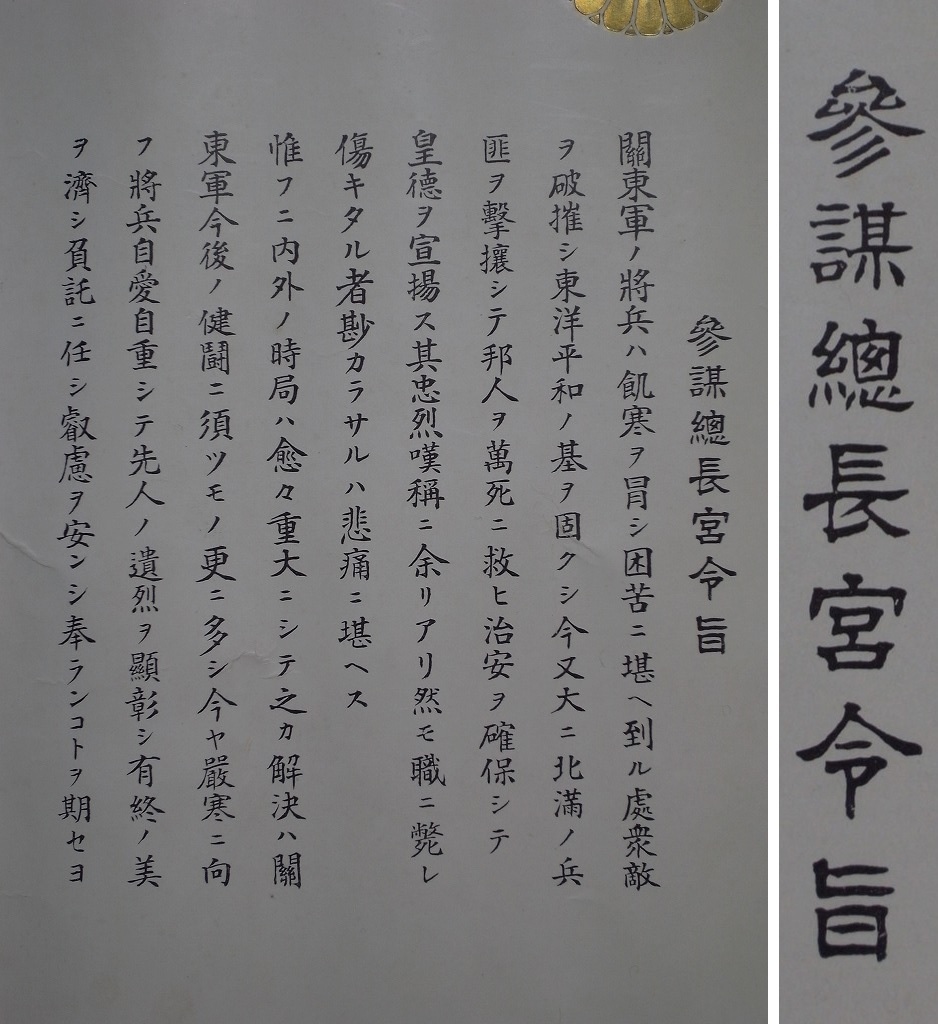 參謀總長宮令旨
關東軍ノ將兵ハ飢寒ヲ冐シ困苦ニ堪ヘ到ル處衆敵
ヲ破摧シ東洋平和ノ基ヲ固クシ今又大ニ北滿ノ兵
匪ヲ擊攘シテ邦人ヲ萬死ニ救ヒ治安ヲ確保シテ
皇德ヲ宣揚ス其忠烈嘆稱ニ余リアリ然モ職ニ斃レ
傷キタル者尠カラサルハ悲痛ニ堪ヘス
惟フニ内外ノ時局ハ愈々重大ニシテ之カ解決ハ關
東軍今後ノ健鬪ニ須ツモノ更ニ多シ今ヤ嚴寒ニ向
フ將兵自愛自重シテ先人ノ遺烈ヲ顯彰シ有終ノ美
ヲ濟シ負託ニ任シ叡慮ヲ安ンシ奉ランコトヲ期セヨ
參謀總長宮令旨